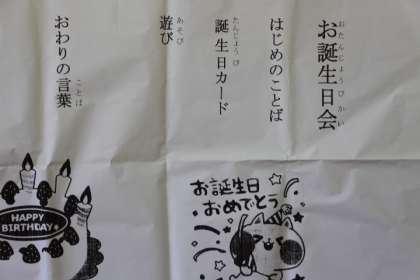 お誕生日会
おたんじょうびかい
はじめのことば
誕生日カード
たんじょうび
遊び
あそび
おわりの言葉
ことば
お誕生日
おめでとう
HAPPY
BIRTHDAY